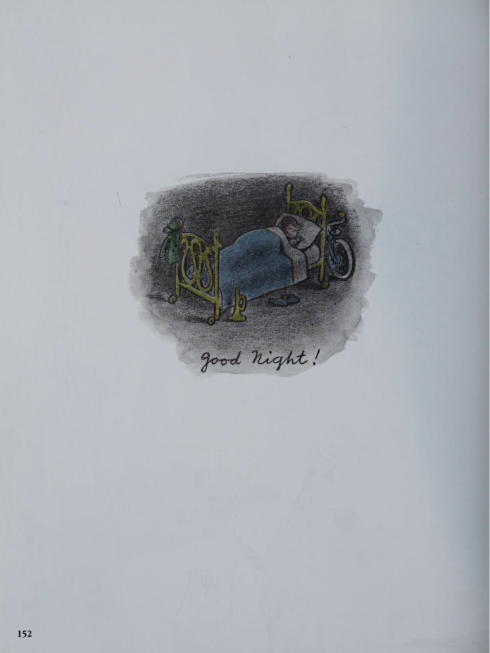 Good Night!
152